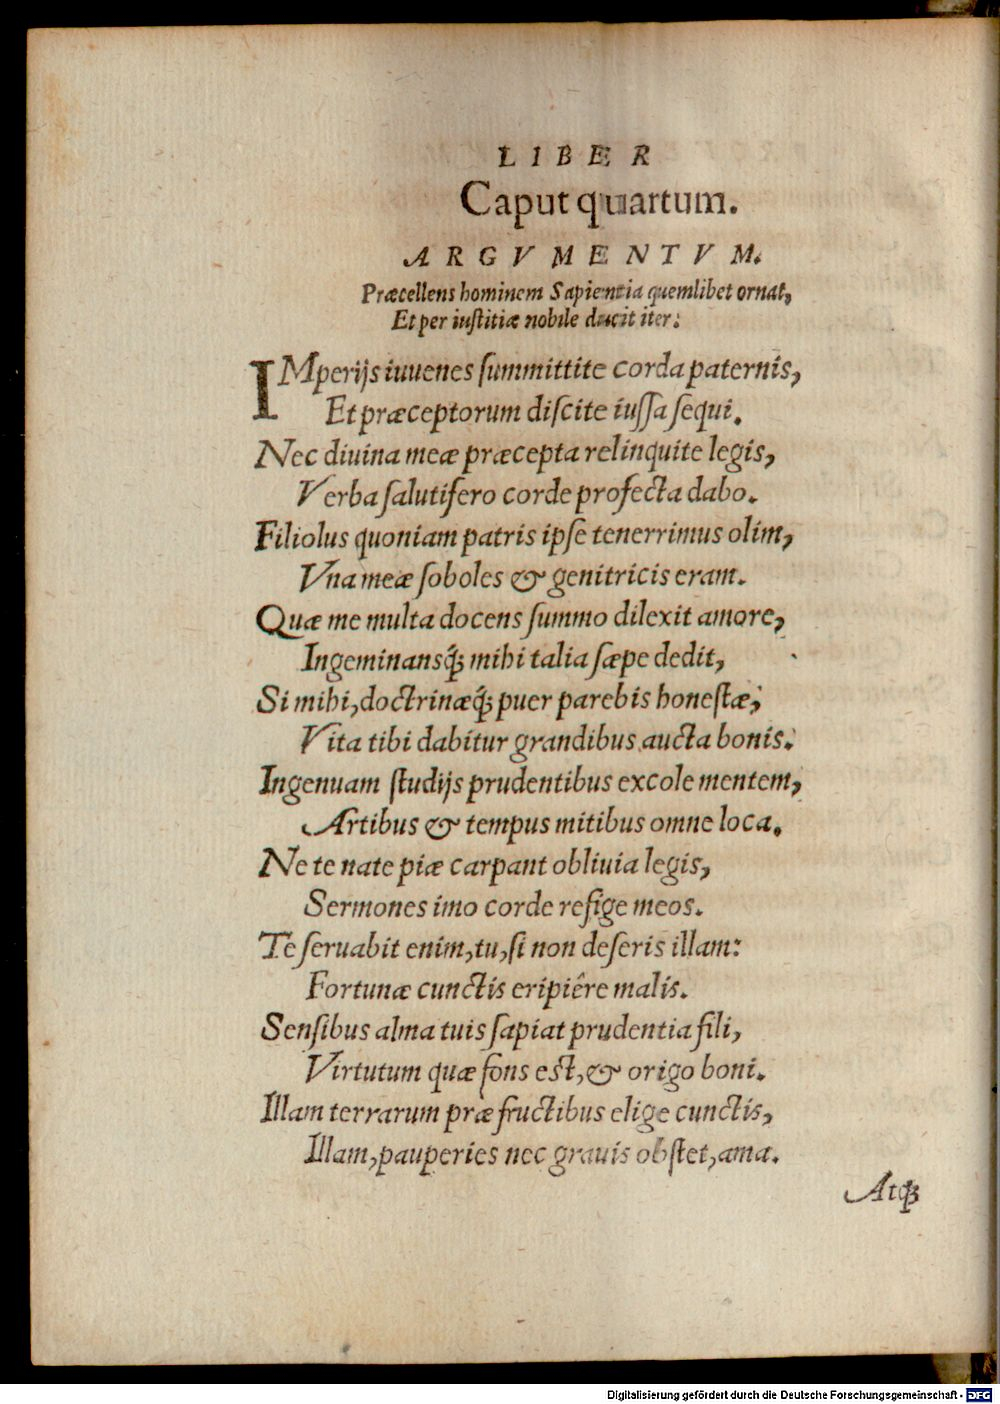 LIBER
Caput quartum.
ARGVMENTVM.
Præcellens hominem Sapientia quemlibet ornat,
Et per iuſtitiæ nobile ducit iter.
IMperijs iuuenes ſummittite corda paternis,
Et præceptorum diſcite iuſſa ſequi.
Nec diuina meæ præcepta relinquite legis,
Verba ſalutifero corde profecta dabo.
Filiolus quoniam patris ipſe tenerrimus olim,
Vna meæ ſoboles & genitricis eram.
Quæ me multa docens ſummo dilexit amore,
Ingeminansq́; mihi talia ſæpe dedit,
Si mihi, doctrinæq́; puer parebis honeſtæ,
Vita tibi dabitur grandibus aucta bonis.
Ingenuam ſtudijs prudentibus excole mentem,
Artibus & tempus mitibus omne loca.
Ne te nate piæ carpant obliuia legis,
Sermones imo corde refige meos.
Te ſeruabit enim, tu, ſi non deſeris illam:
Fortunæ cunctis eripiêre malis.
Senſibus alma tuis ſapiat prudentia fili,
Virtutum quæ fons eſt, & origo boni.
Illam terrarum præ fructibus elige cunctis,
Illam, pauperies nec grauis obſtet, ama.
Atq;
Digitalisierung gefördert durch die Deutsche Forschungsgemeinschaft - DFG